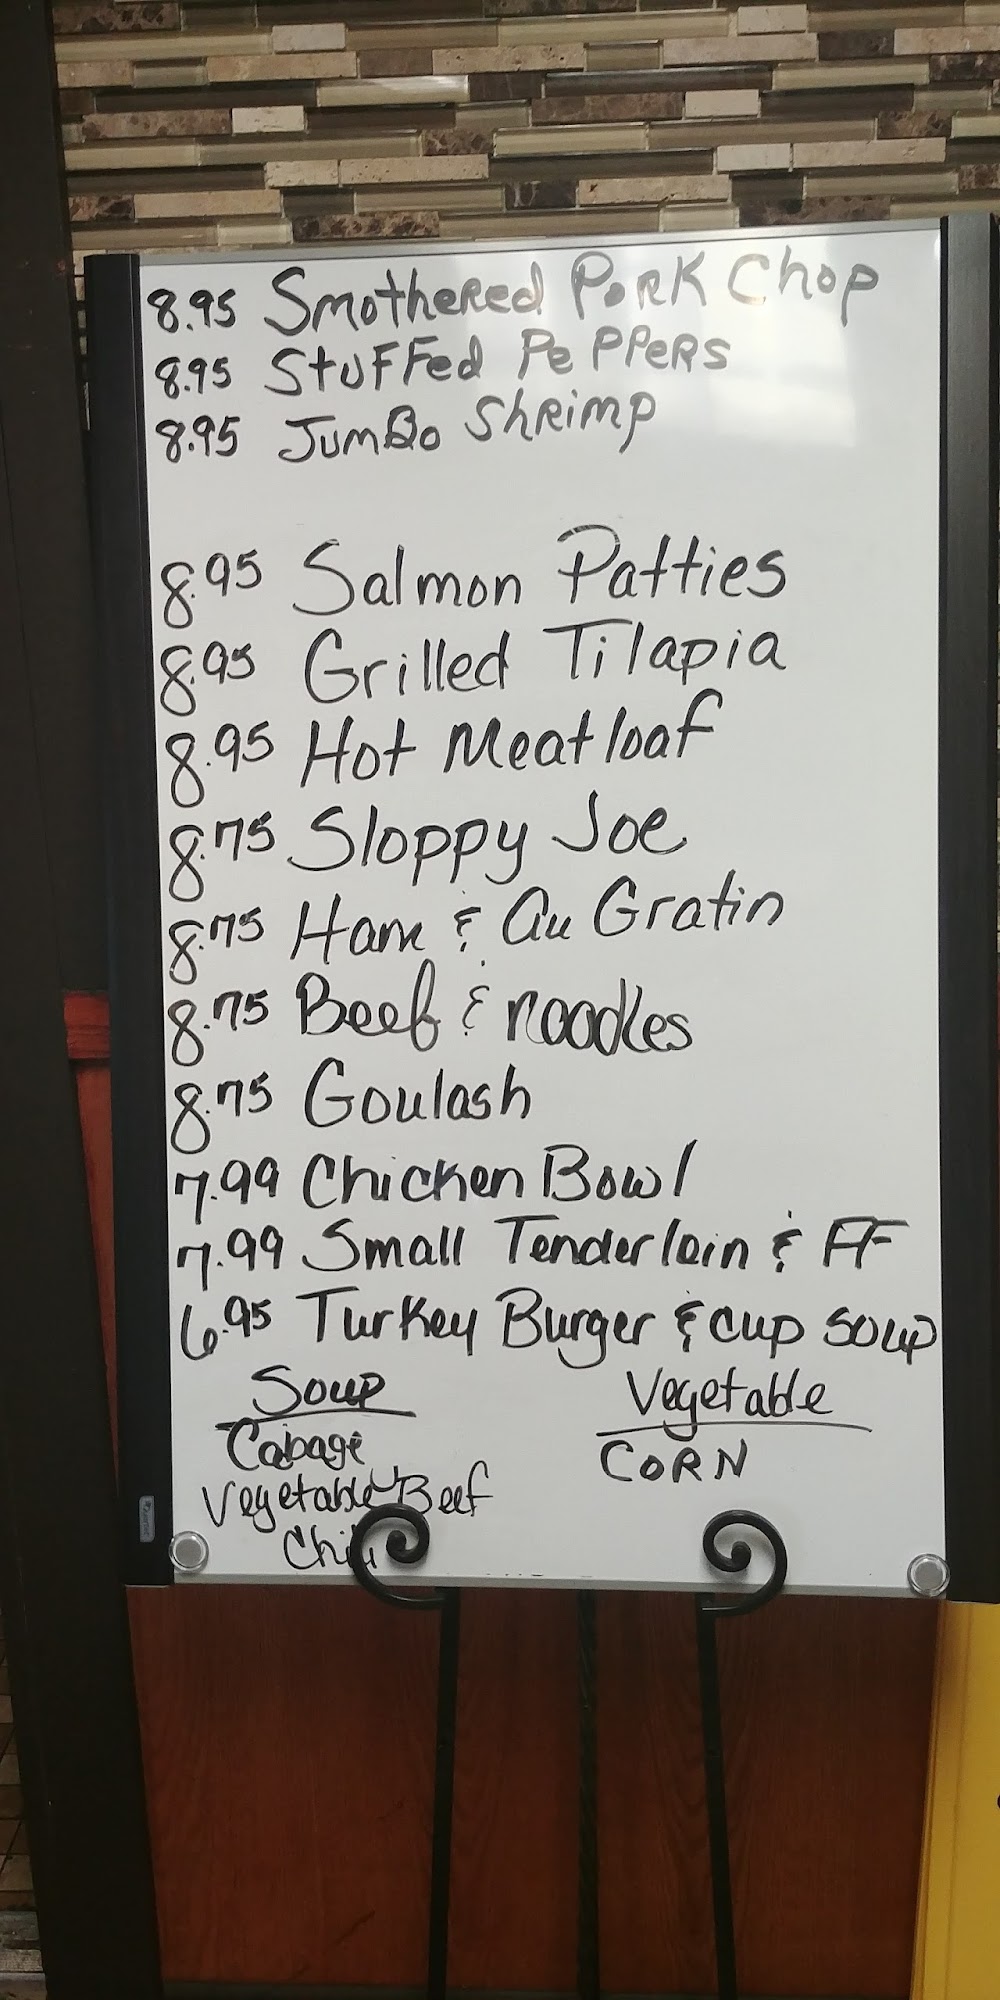 8.95 Smothered Pork Chop
8.95 Stuffed Peppers
8.95 Jumbo Shrimp
8.95 Salmon Patties
8.95 Grilled Tilapia
8.95 Hot Meatloaf
8.75 Sloppy Joe
8.75 Ham & Au Gratin
8.75 Beef & noodles
8.75 Goulash
7.99 Chicken Bowl
7.99 Small Tenderloin & FF
6.95 Turkey Burger & cup soup
Soup
Cabage
Vegetable Beef
Chili
Vegetable
CORN